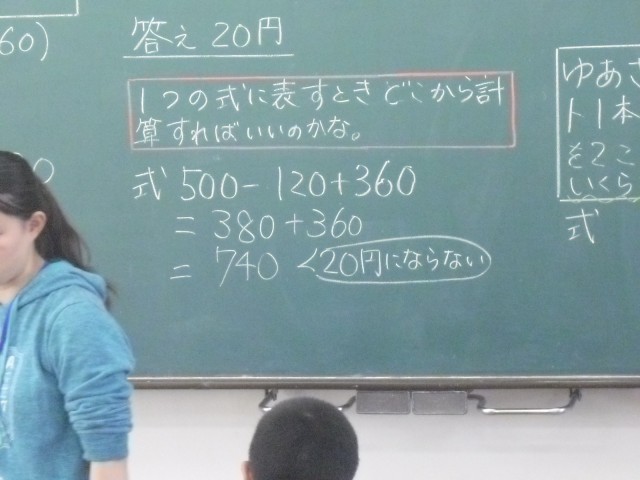 60)
答え 20円
1つの式に表すときどこから計
算すればいいのかな。
式 500-120+360
= 380+360
= 740 <20円にならない
ゆあさ
ト1本
を2こ
いくら
式